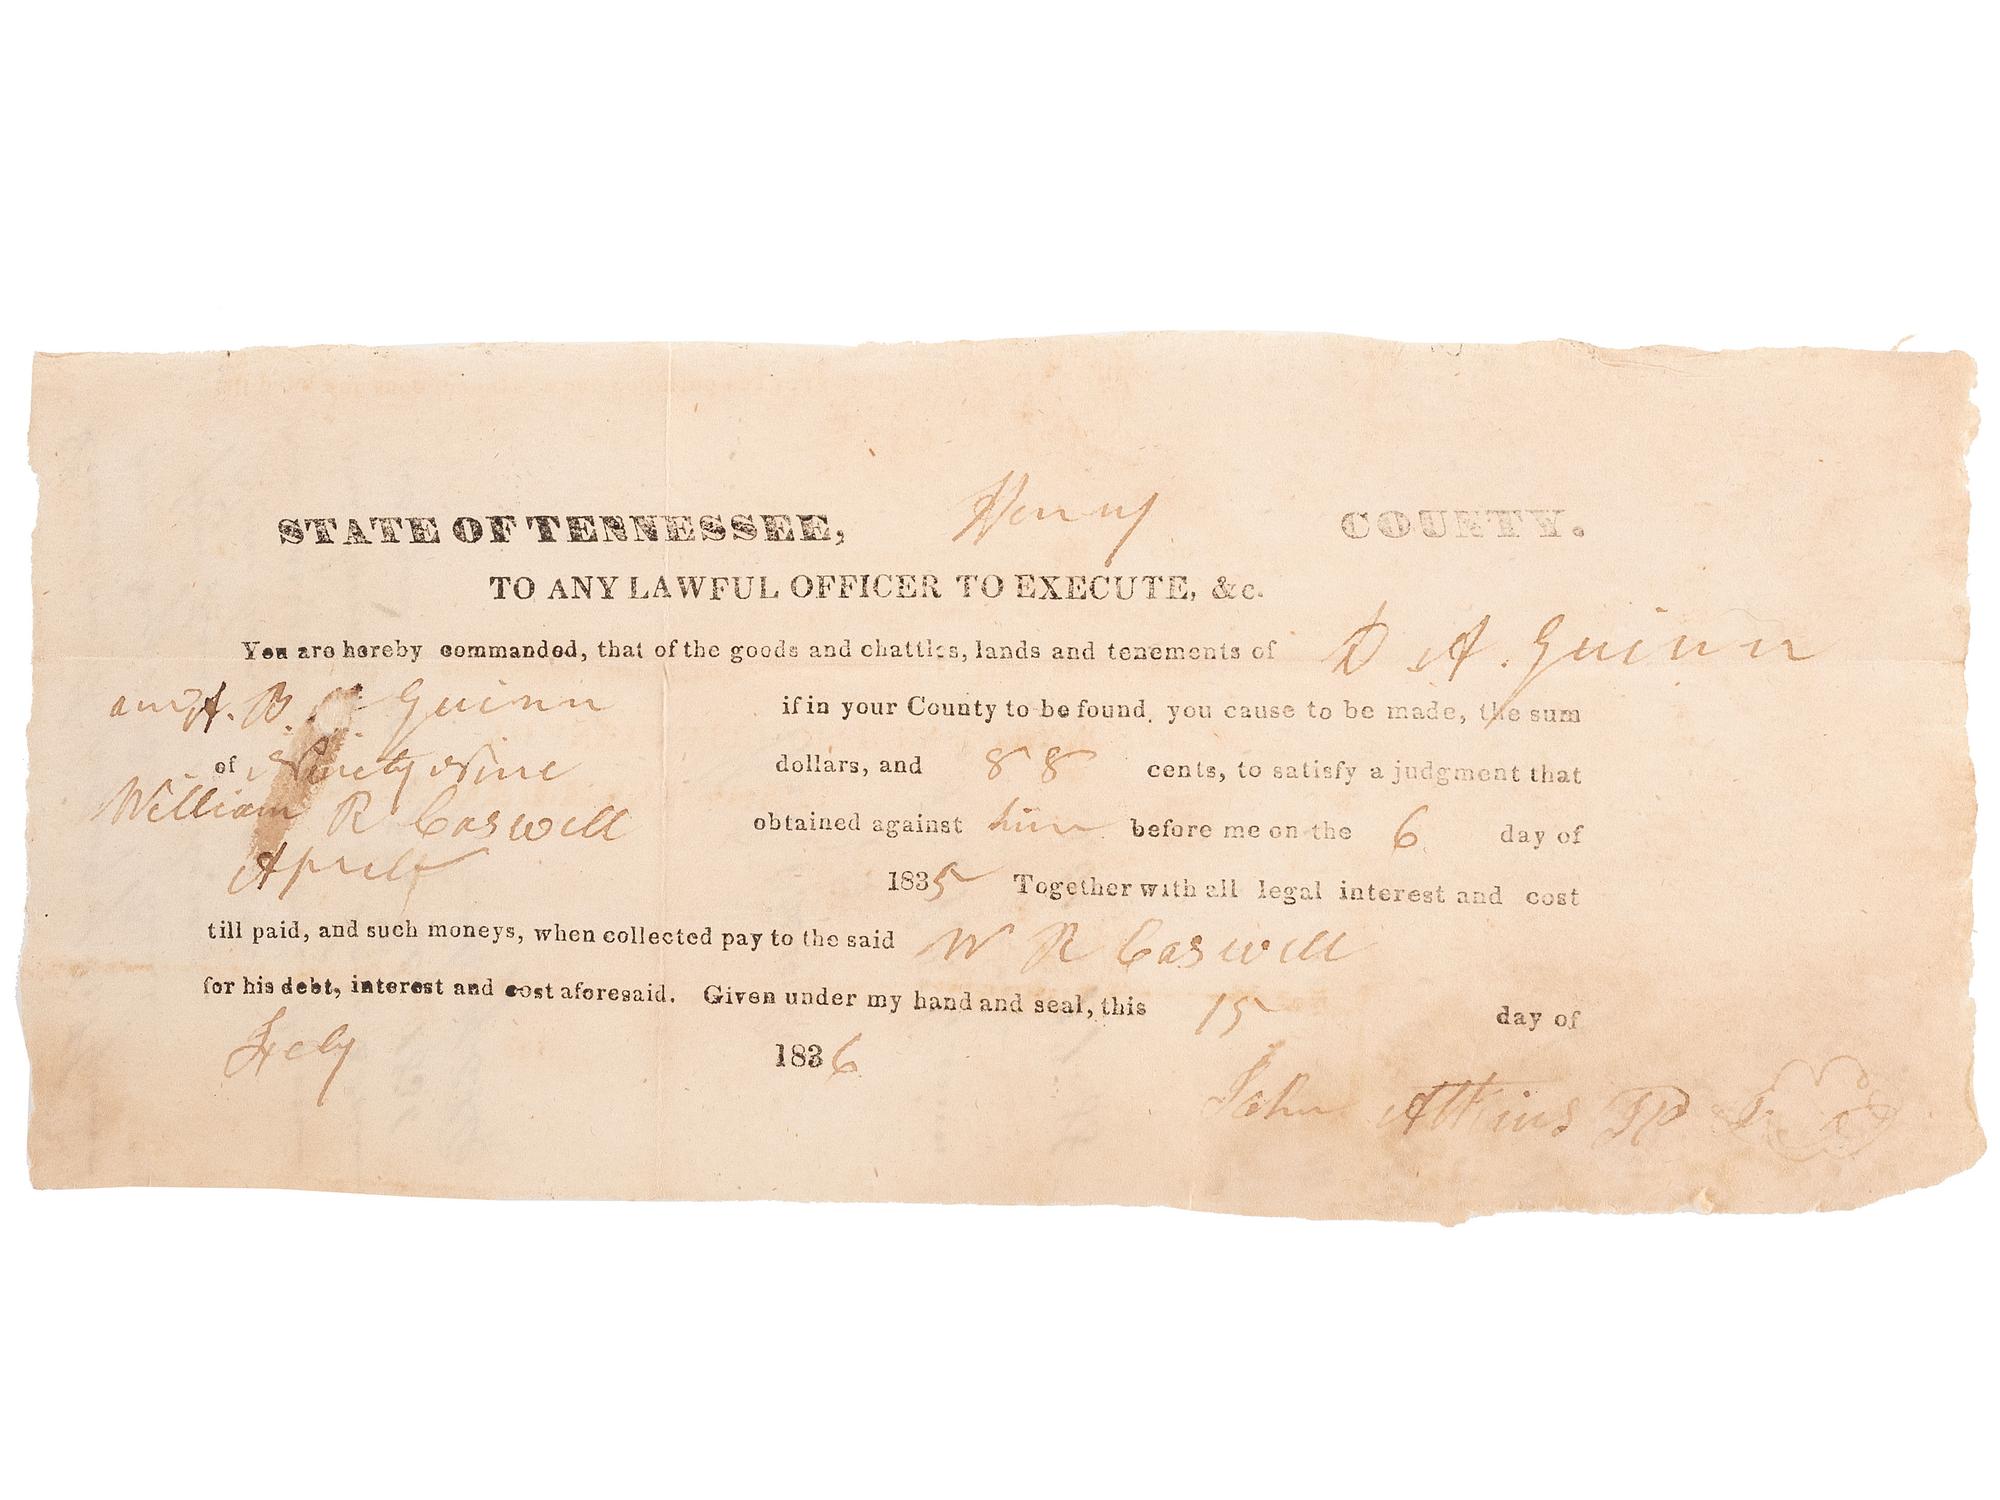 STATE OF TENNESSEE, Henry COUNTY.
TO ANY LAWFUL OFFICER TO EXECUTE, &c.
You are hereby commanded, that of the goods and chattles, lands and tenements of D A. Guinn
and A. B. Guinn if in your County to be found, you cause to be made, the sum
of Ninety Nine dollars, and 88 cents, to satisfy a judgment that
William R Caswell obtained against him before me on the 6 day of
April 1835 Together with all legal interest and cost
till paid, and such moneys, when collected pay to the said W R Caswell
for his debt, interest and cost aforesaid. Given under my hand and seal, this 15 day of
1836
John Atkins JP